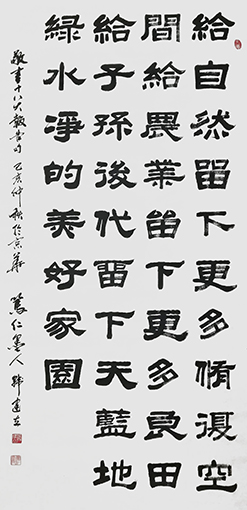 給自然留下更多脩復空
間給農業留下更多良田
給子孫後代留下天藍地
綠水淨的美好家園
敬書十八大報告句 己亥仲秋於京華 篤仁墨人